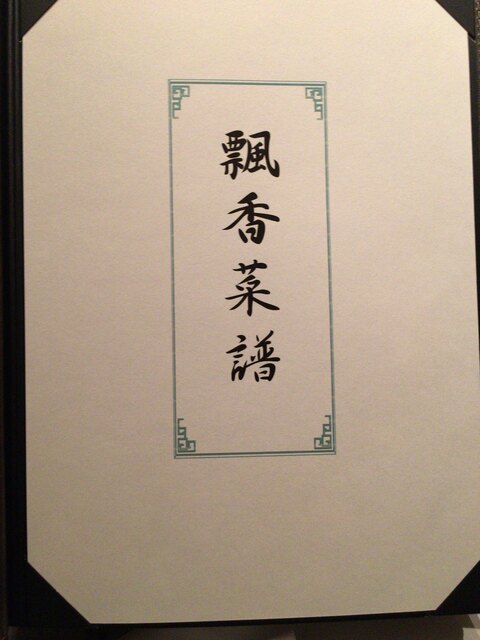 飄香菜譜